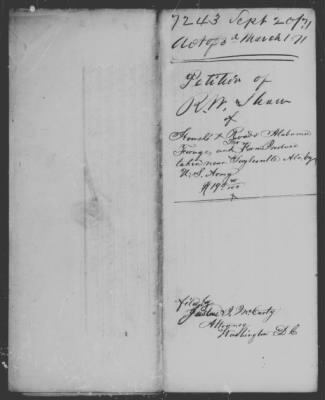 7243 Sept 20/71
Act of 3d March 1871
Petition of
R. W. Shaw
of
Roads Alabama
For
Forage and Farm Produce
taken near Gaylesville Ala by
U. S. Army
filed by
McCarty
Attorney
Washington D.C